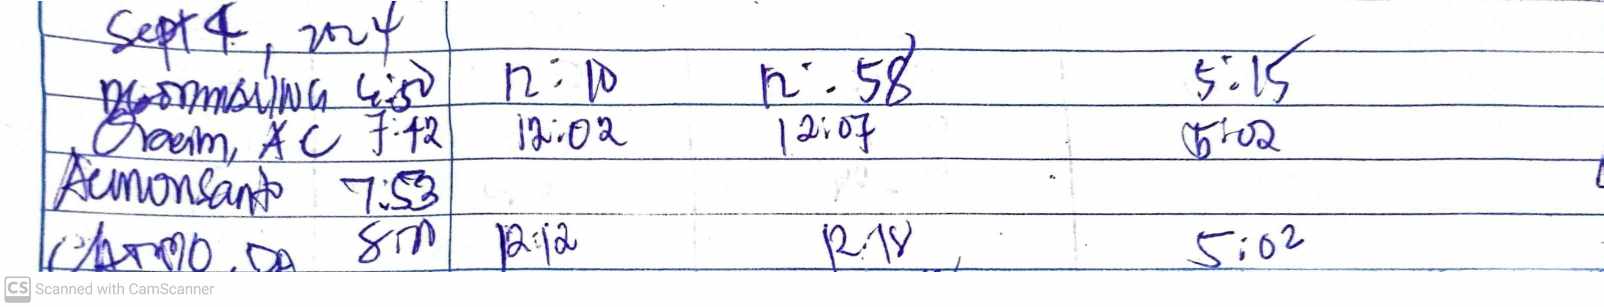 Sept 4, 2024
6:50 12:10 12:58 5:15
Oracim, AC 7:42 12:02 12:07 5:02
Acmonsanto 7:53
8:00 12:12 12:18 5:02
CS Scanned with CamScanner